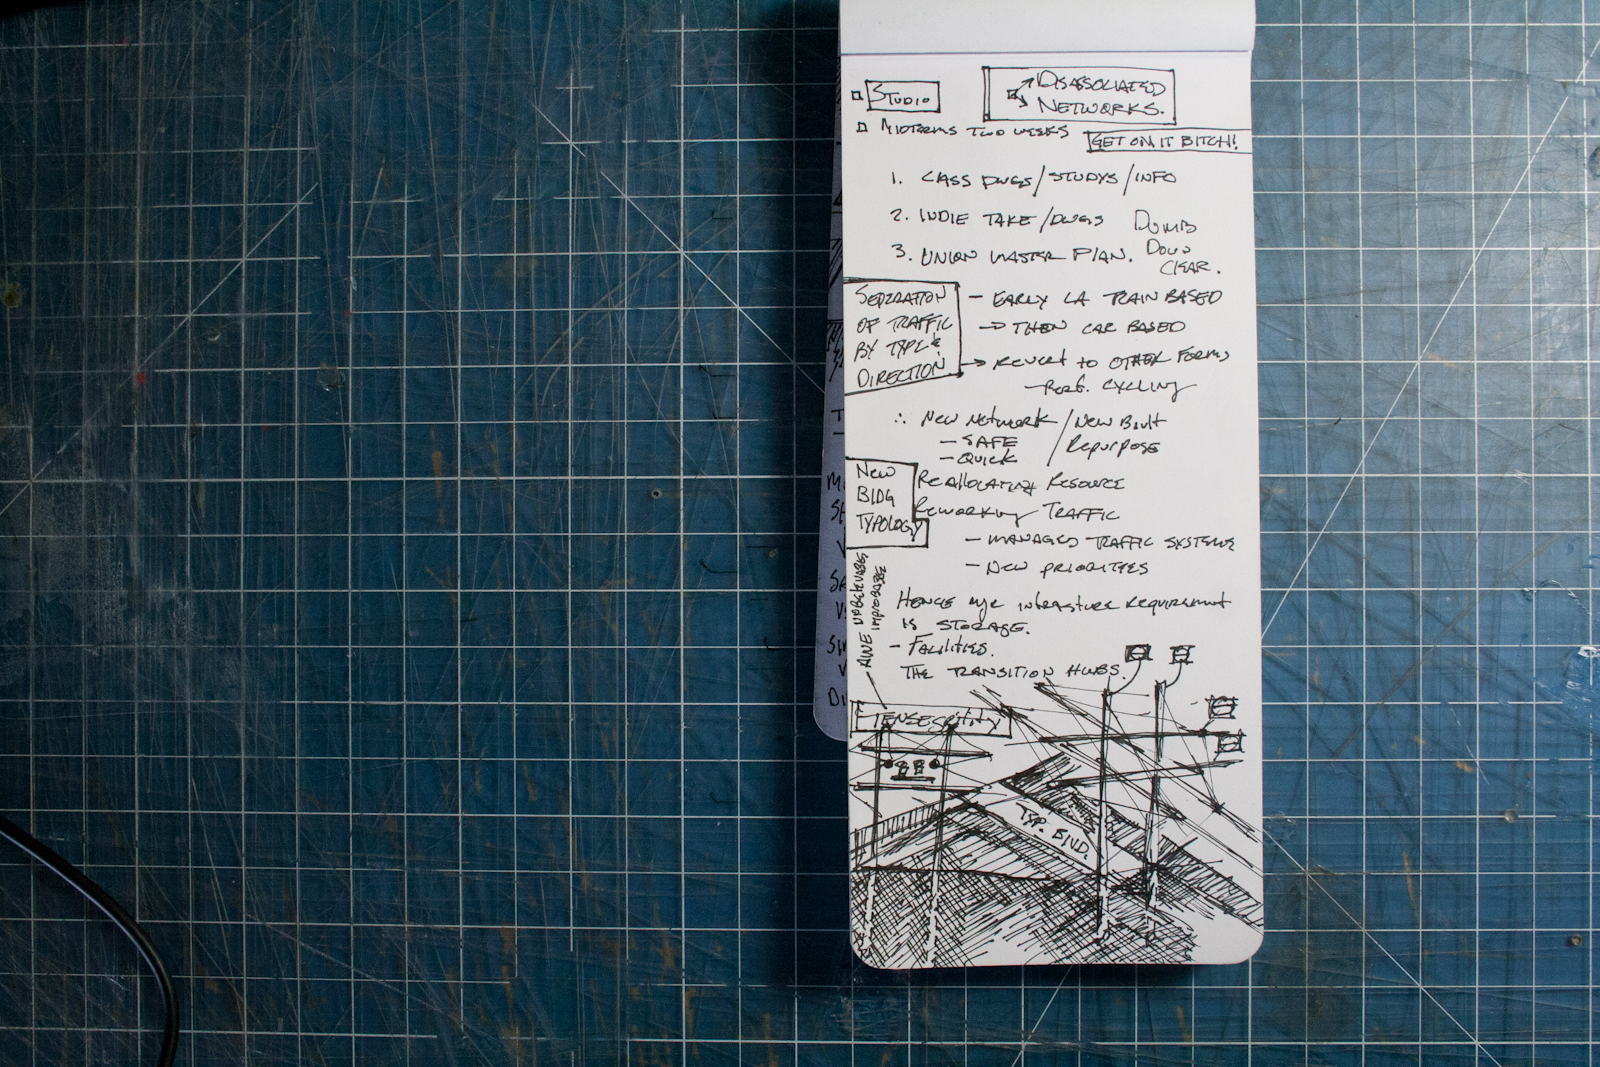 STUDIO
DISASSOCIATED
NETWORKS.
MIDTERMS TWO WEEKS
GET ON IT BITCH!
1. CLASS DWGS/STUDYS/INFO
2. INDIE TAKE/DWGS
3. UNION MASTER PLAN.
DUMB
DOWN
CLEAR.
SEPERATION
OF TRAFFIC
BY TYPE &
DIRECTION
- EARLY LA TRAIN BASED
→ THEN CAR BASED
→ REVERT TO OTHER FORMS
- PERF. CYCLING
∴ NEW NETWORK / NEW BUILT
- SAFE / REPURPOSE
- QUICK
NEW
BLDG
TYPOLOGY
REALLOCATING RESOURCE
REWORKING TRAFFIC
- MANAGED TRAFFIC SYSTEMS
- NEW PRIORITIES
HENCE REQUIREMENT
IS STORAGE.
- FACILITIES.
THE TRANSITION HUBS.
AWE UNBELIVABLE
IMPROBABLE
TENSEGRITITY
TYP. BLVD.